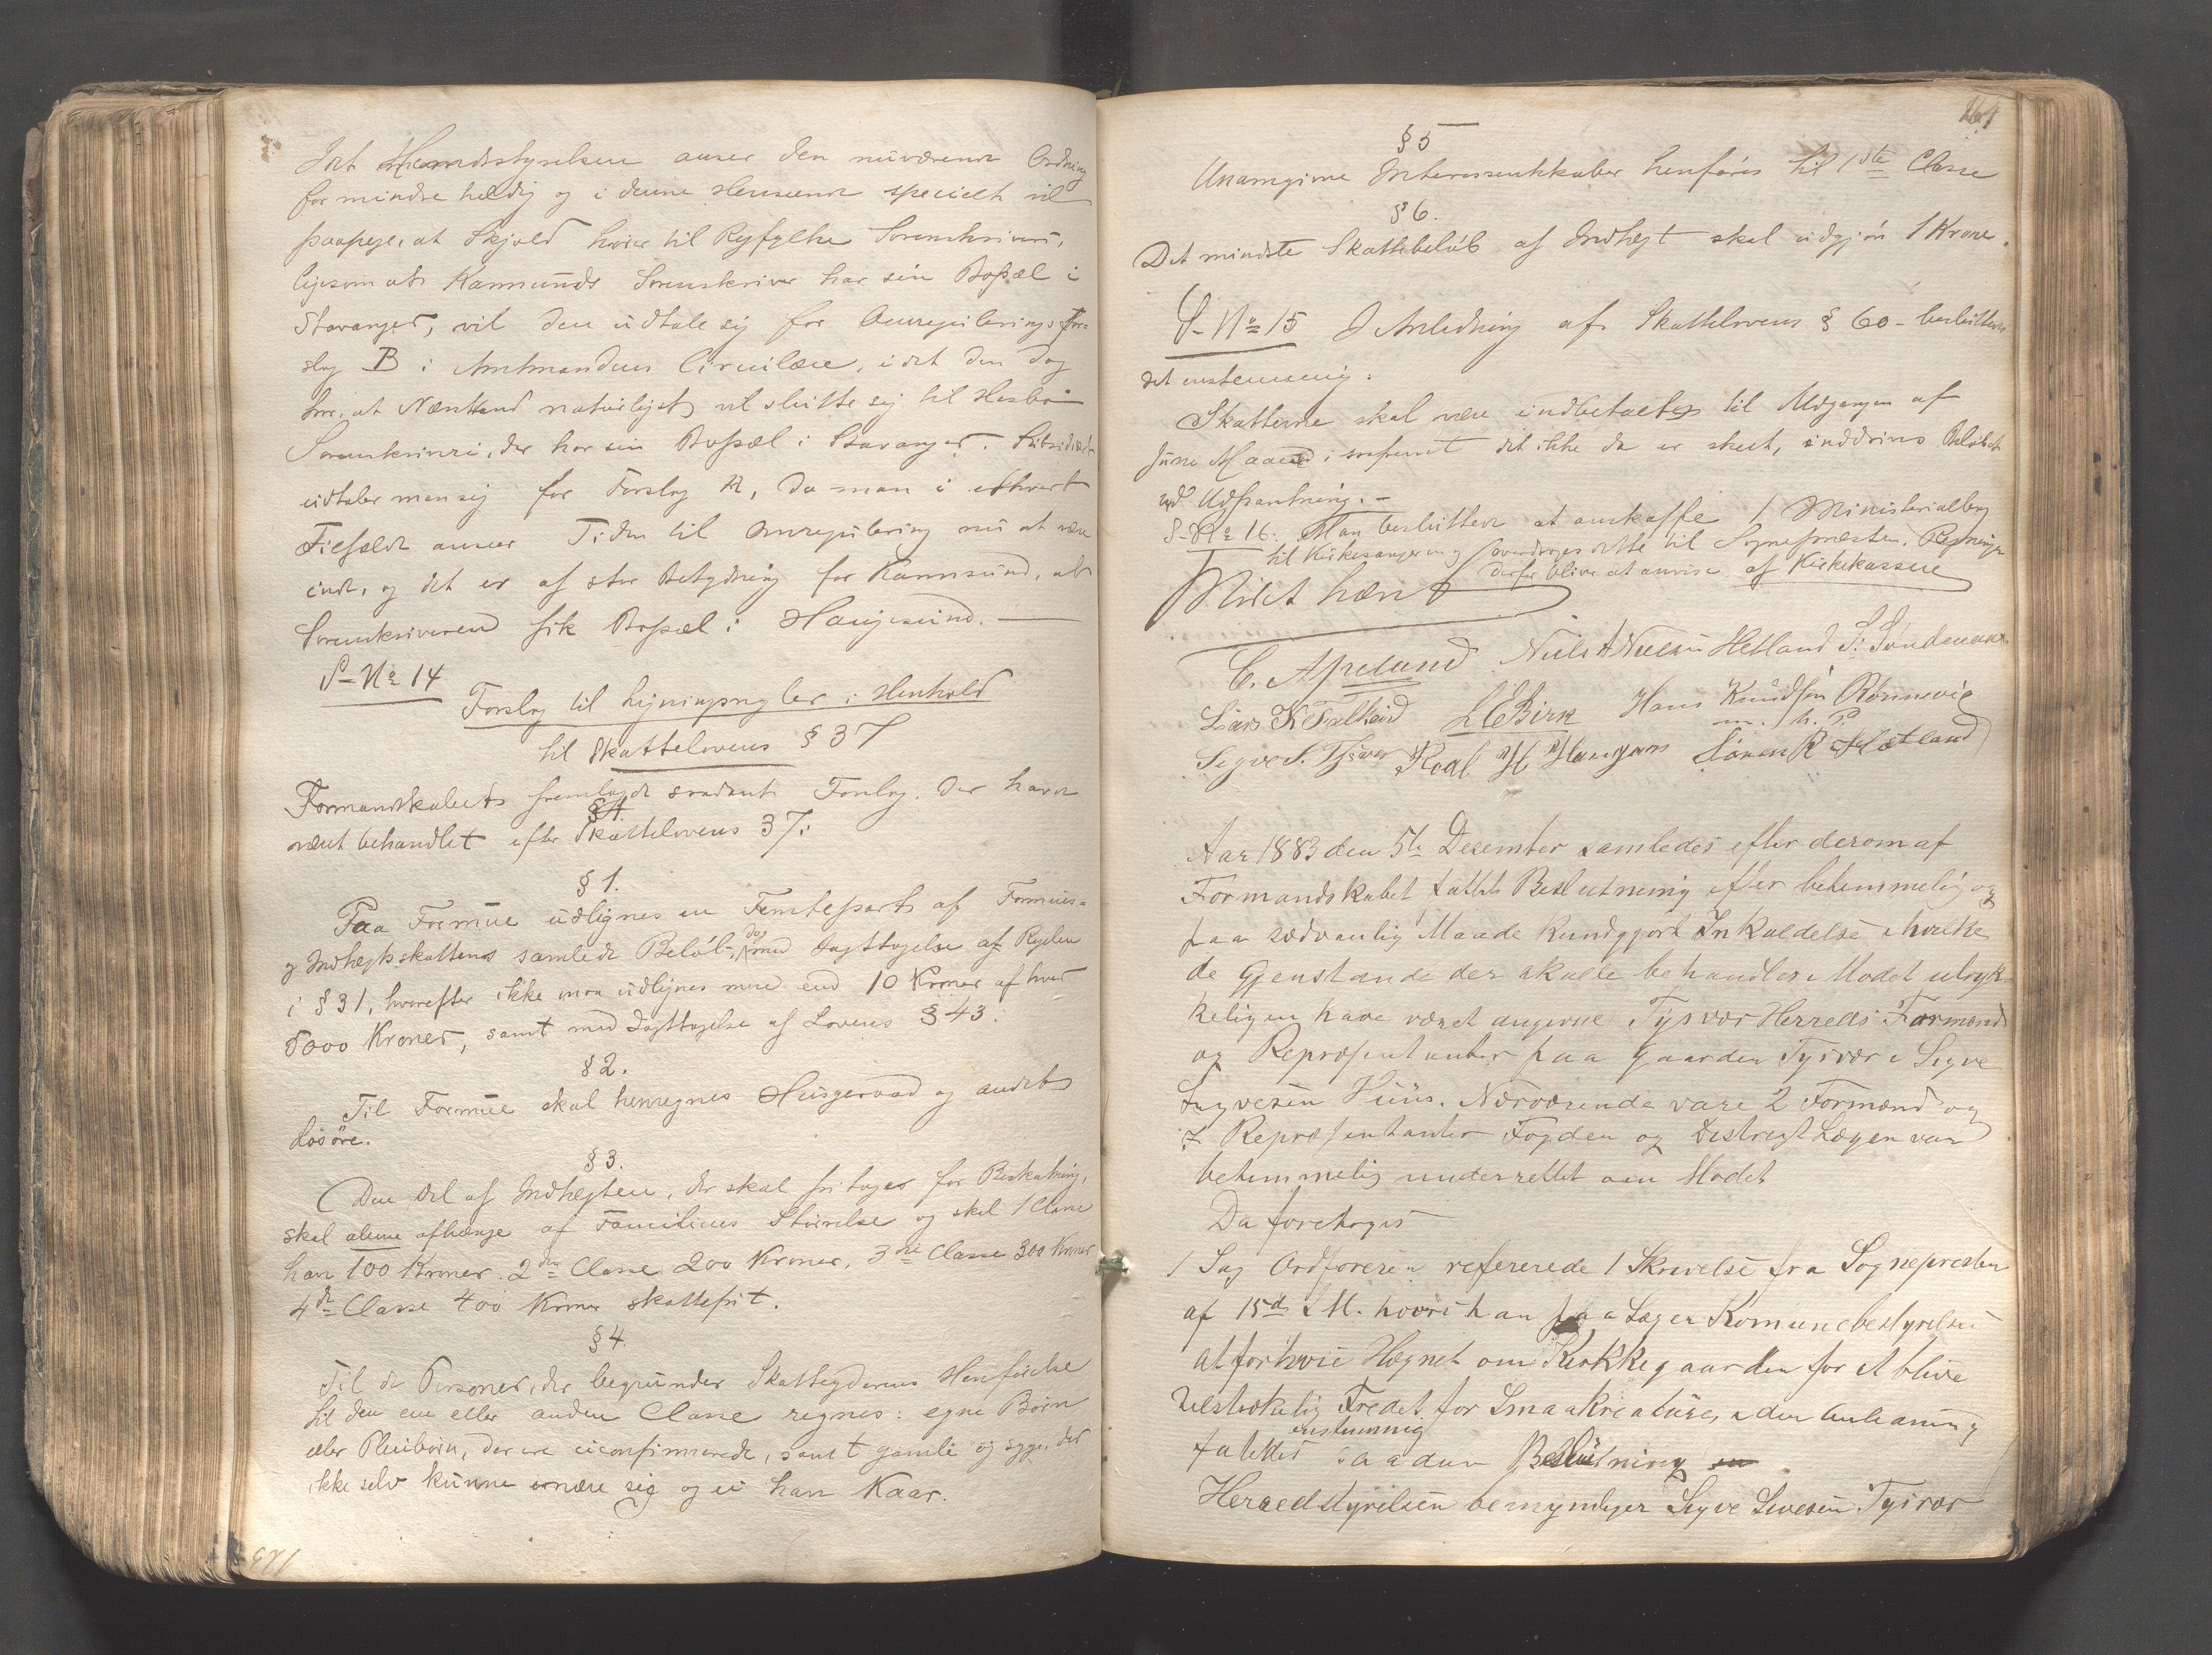 Idet Herredsstyrelsen anser den nuværende Ordning
for mindre heldig og i denne Henseende specielt vil
paapege, at Skjold hører til Ryfylke Sorenskriveri,
ligesom at Karmsunds Sorenskriver har sin Bopæl i
Stavanger, vil den udtale sig for Omreguleringsfor-
slag B i Amtmandens Circulære, idet den dog
tror, at Nærstrand naturligst vil slutte sig til Hesbø
Sorenskriveri, der har sin Bopæl i Stavanger. Subsidiært
udtaler man sig for Forslag A, da man i ethvert
Tilfælde anser Tiden til Omregulering nu at være
inde, og det er af stor Betydning for Karmsund, at
Sorenskriveren fik Bopæl i Haugesund.
S-No 14
Forslag til Ligningsregler i Henhold
til Skattelovens § 37
Formandskabets fremlagde saadant Forslag. Der havde
været behandlet efter Skattelovens 37:
§ 1.
Paa Formue udlignes en Femtepart af Formues-
og Indtægtsskattens samlede Beløb, dog med Iagttagelse af Reglen
i § 31, hvorefter ikke maa udlignes mere end 10 Kroner af hver
5000 Kroner, samt med Iagttagelse af Lovens § 43.
§ 2.
Til Formue skal henregnes Husgeraad og andet
Løsøre.
§ 3.
Den Del af Indtægten, der skal fritages for Beskatning,
skal alene afhænge af Familiens Størrelse og skal 1 Classe
have 100 Kroner, 2den Classe 200 Kroner, 3die Classe 300 Kroner
4de Classe 400 Kroner skattefrit.
§ 4.
Til de Personer, der begrunder Skatteyderens Henførelse
til den ene eller anden Classe regnes: egne Børn
eller Pleiebørn, der ere uconfirmerede, samt gamle og syge, der
ikke selv kunne ernære sig og ei have Kaar.
161
§ 5
Unavngivne Interessentskaber henføres til 1ste Classe
§ 6.
Det mindste Skattebeløb af Indtægt skal udgjøre 1 Krone.
S-No 15 I Anledning af Skattelovens § 60 besluttedes
det enstemmig:
Skatterne skal være indbetalte til Udgangen af
Juni Maaned; saafremt det ikke da er skeet, inddrives Beløbet
ved Udpantning. -
S-No 16: Man besluttede at anskaffe 1 Ministerialbog
til Kirkesangeren og overdroges dette til Sognepræsten. Regningen
derfor bliver at anvise af Kirkekassen
Mødet hævet
C. Apeland Niels A Nielsen Hetland S: Søndenaa
Lars K Falkeid L E Birk Hans Knudsen Rønnevig
m. h. P.
Sigve S. Tysvær Roal H Haugen Søren R Hetland
Aar 1883 den 5te Desember samledes efter derom af
Formandskabet fattet Beslutning efter betimmelig og
paa sædvanlig Maade kundgjort Inkaldelse i hvilke
de Gjenstande der skulle behandles i Mødet udryk-
keligen have været angivne Tysvær Herreds Formænd
og Repræsentanter paa Gaarden Tysvær i Sigve
Sigvesen Huus. Nærværende vare 2 Formænd og
7 Repræsentanter Fogden og Distrigt Lægen var
betimmelig underrettet om Mødet
Da foretoges
1 Sag Ordføreren refererede 1 Skrivelse fra Sognepresten
af 15de d. M. hvori han paalægger Komunebestyrelsen
at forhøie Hægnet om Kirkkegaarden for at blive
tilstrækelig Fredet for Smaakreature, i den Anledning
fattedes saadan enstemmig Beslutning
Herredstyrelsen bemyndiger Sigve Sivesen Tysvær